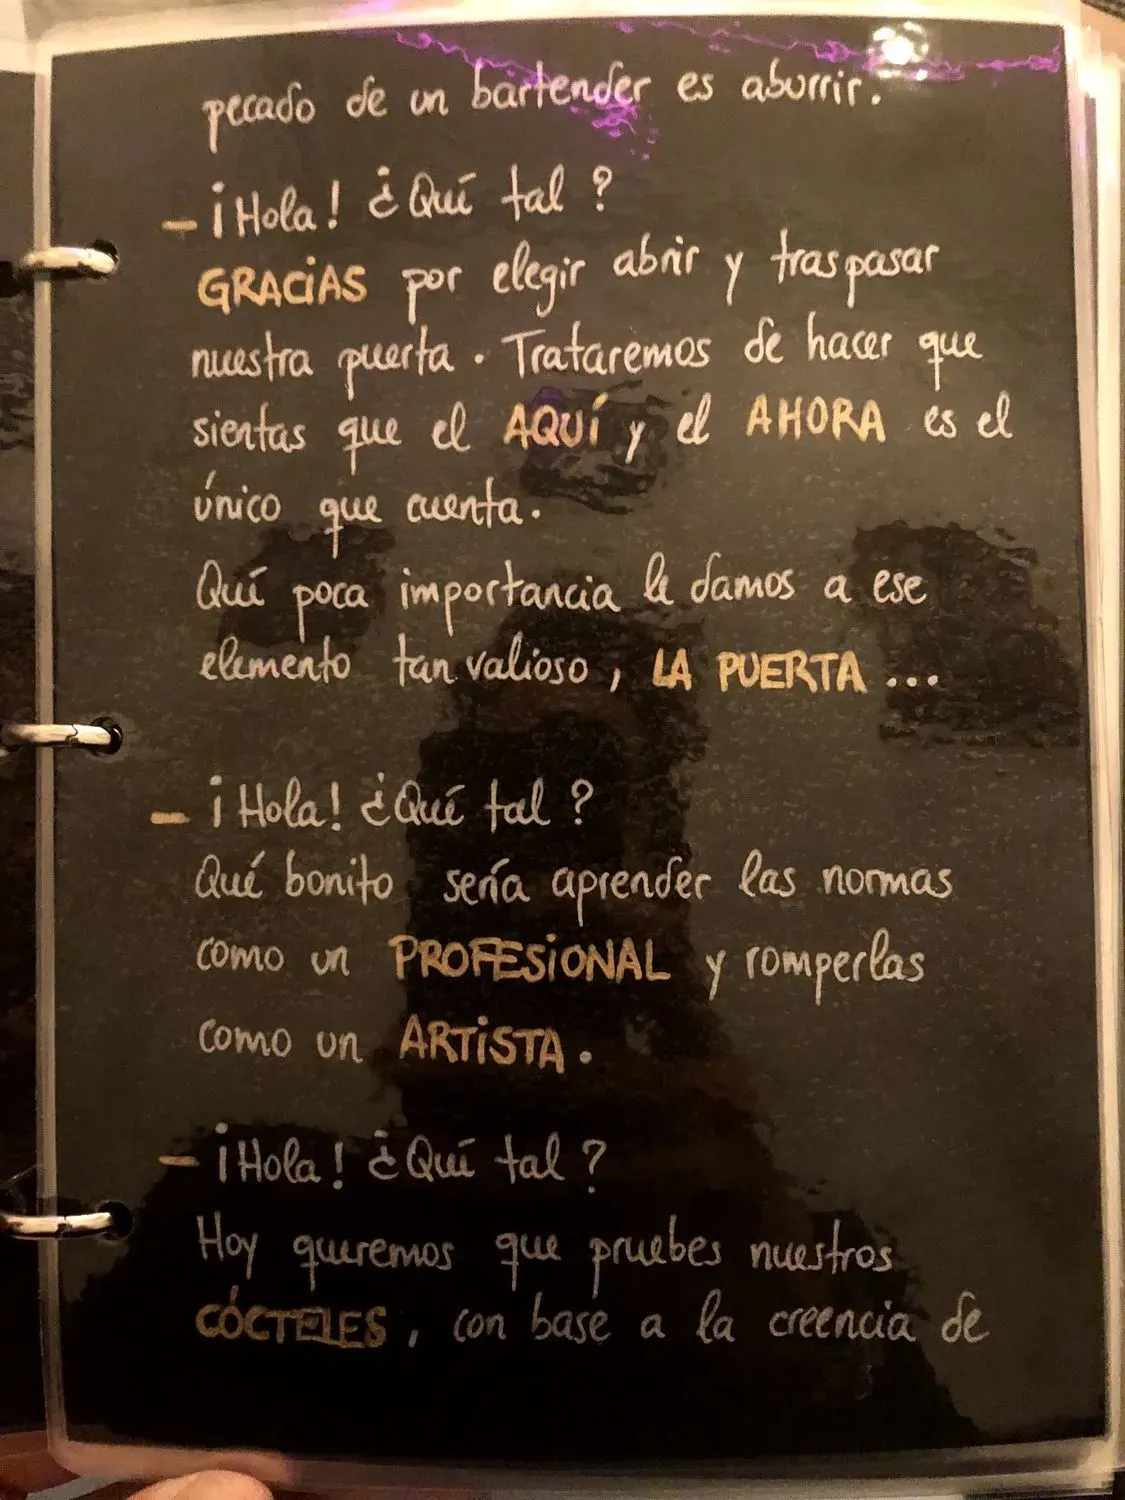 pecado de un bartender es aburrir.
- ¡Hola! ¿Qué tal?
GRACIAS por elegir abrir y traspasar
nuestra puerta. Trataremos de hacer que
sientas que el AQUÍ y el AHORA es el
único que cuenta.
Qué poca importancia le damos a ese
elemento tan valioso, LA PUERTA...
- ¡Hola! ¿Qué tal?
Qué bonito sería aprender las normas
como un PROFESIONAL y romperlas
como un ARTISTA.
- ¡Hola! ¿Qué tal?
Hoy queremos que pruebes nuestros
CÓCTELES, con base a la creencia de